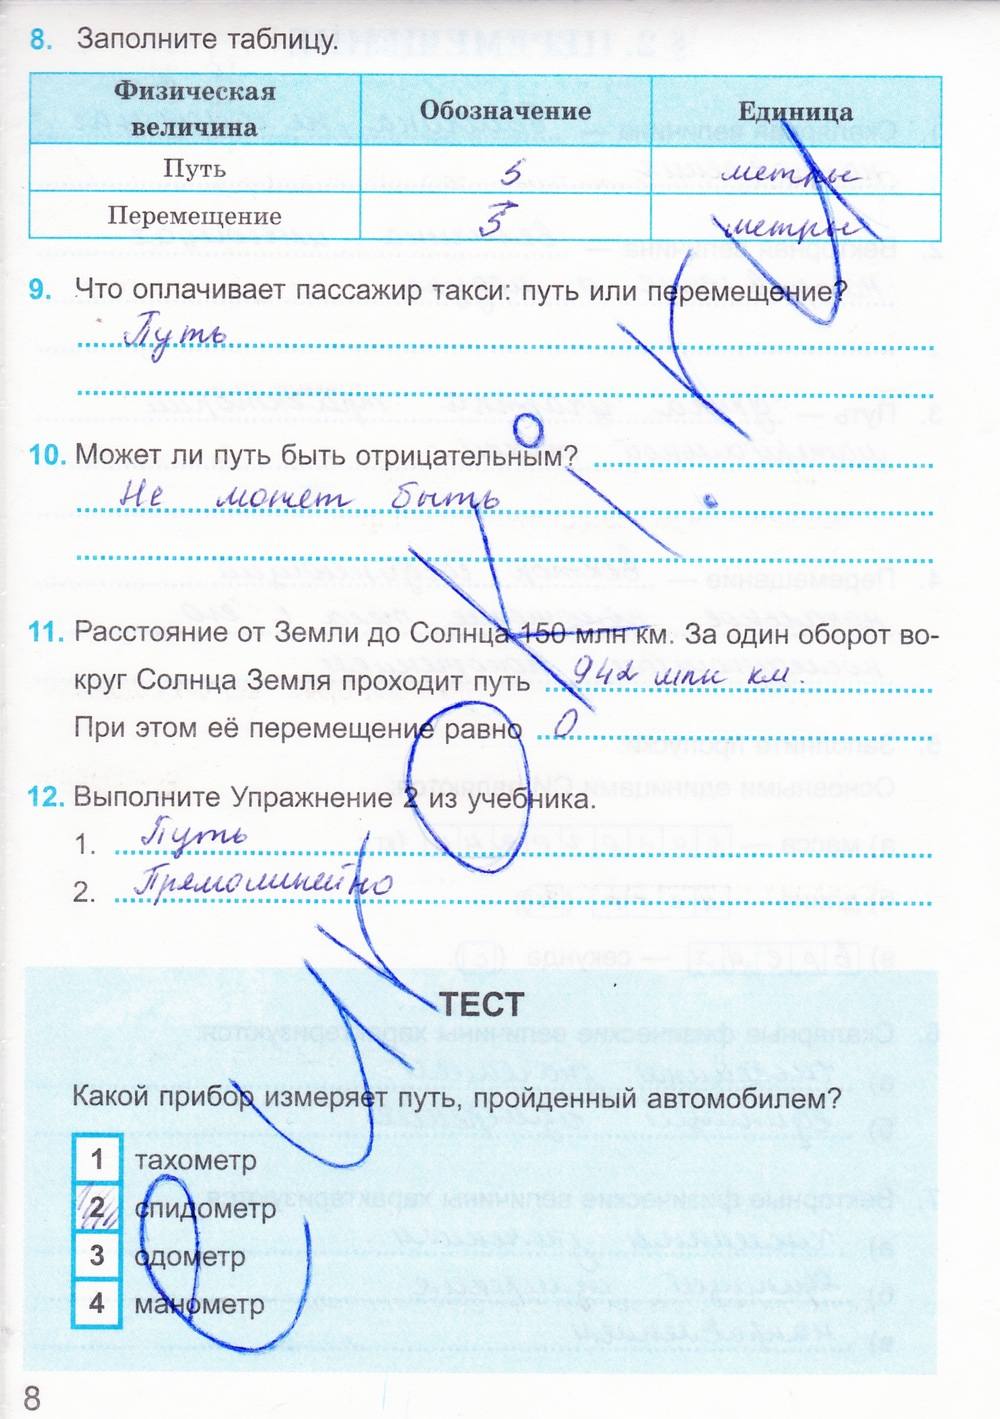 8. Заполните таблицу.
Физическая величина Обозначение Единица
Путь S метры
Перемещение S⃗ метры
9. Что оплачивает пассажир такси: путь или перемещение?
Путь
10. Может ли путь быть отрицательным?
Не может быть
11. Расстояние от Земли до Солнца 150 млн км. За один оборот во-
круг Солнца Земля проходит путь 942 млн км.
При этом её перемещение равно 0
12. Выполните Упражнение 2 из учебника.
1. Путь
2. Прямолинейно
ТЕСТ
Какой прибор измеряет путь, пройденный автомобилем?
1 тахометр
2 спидометр
3 одометр
4 манометр
8